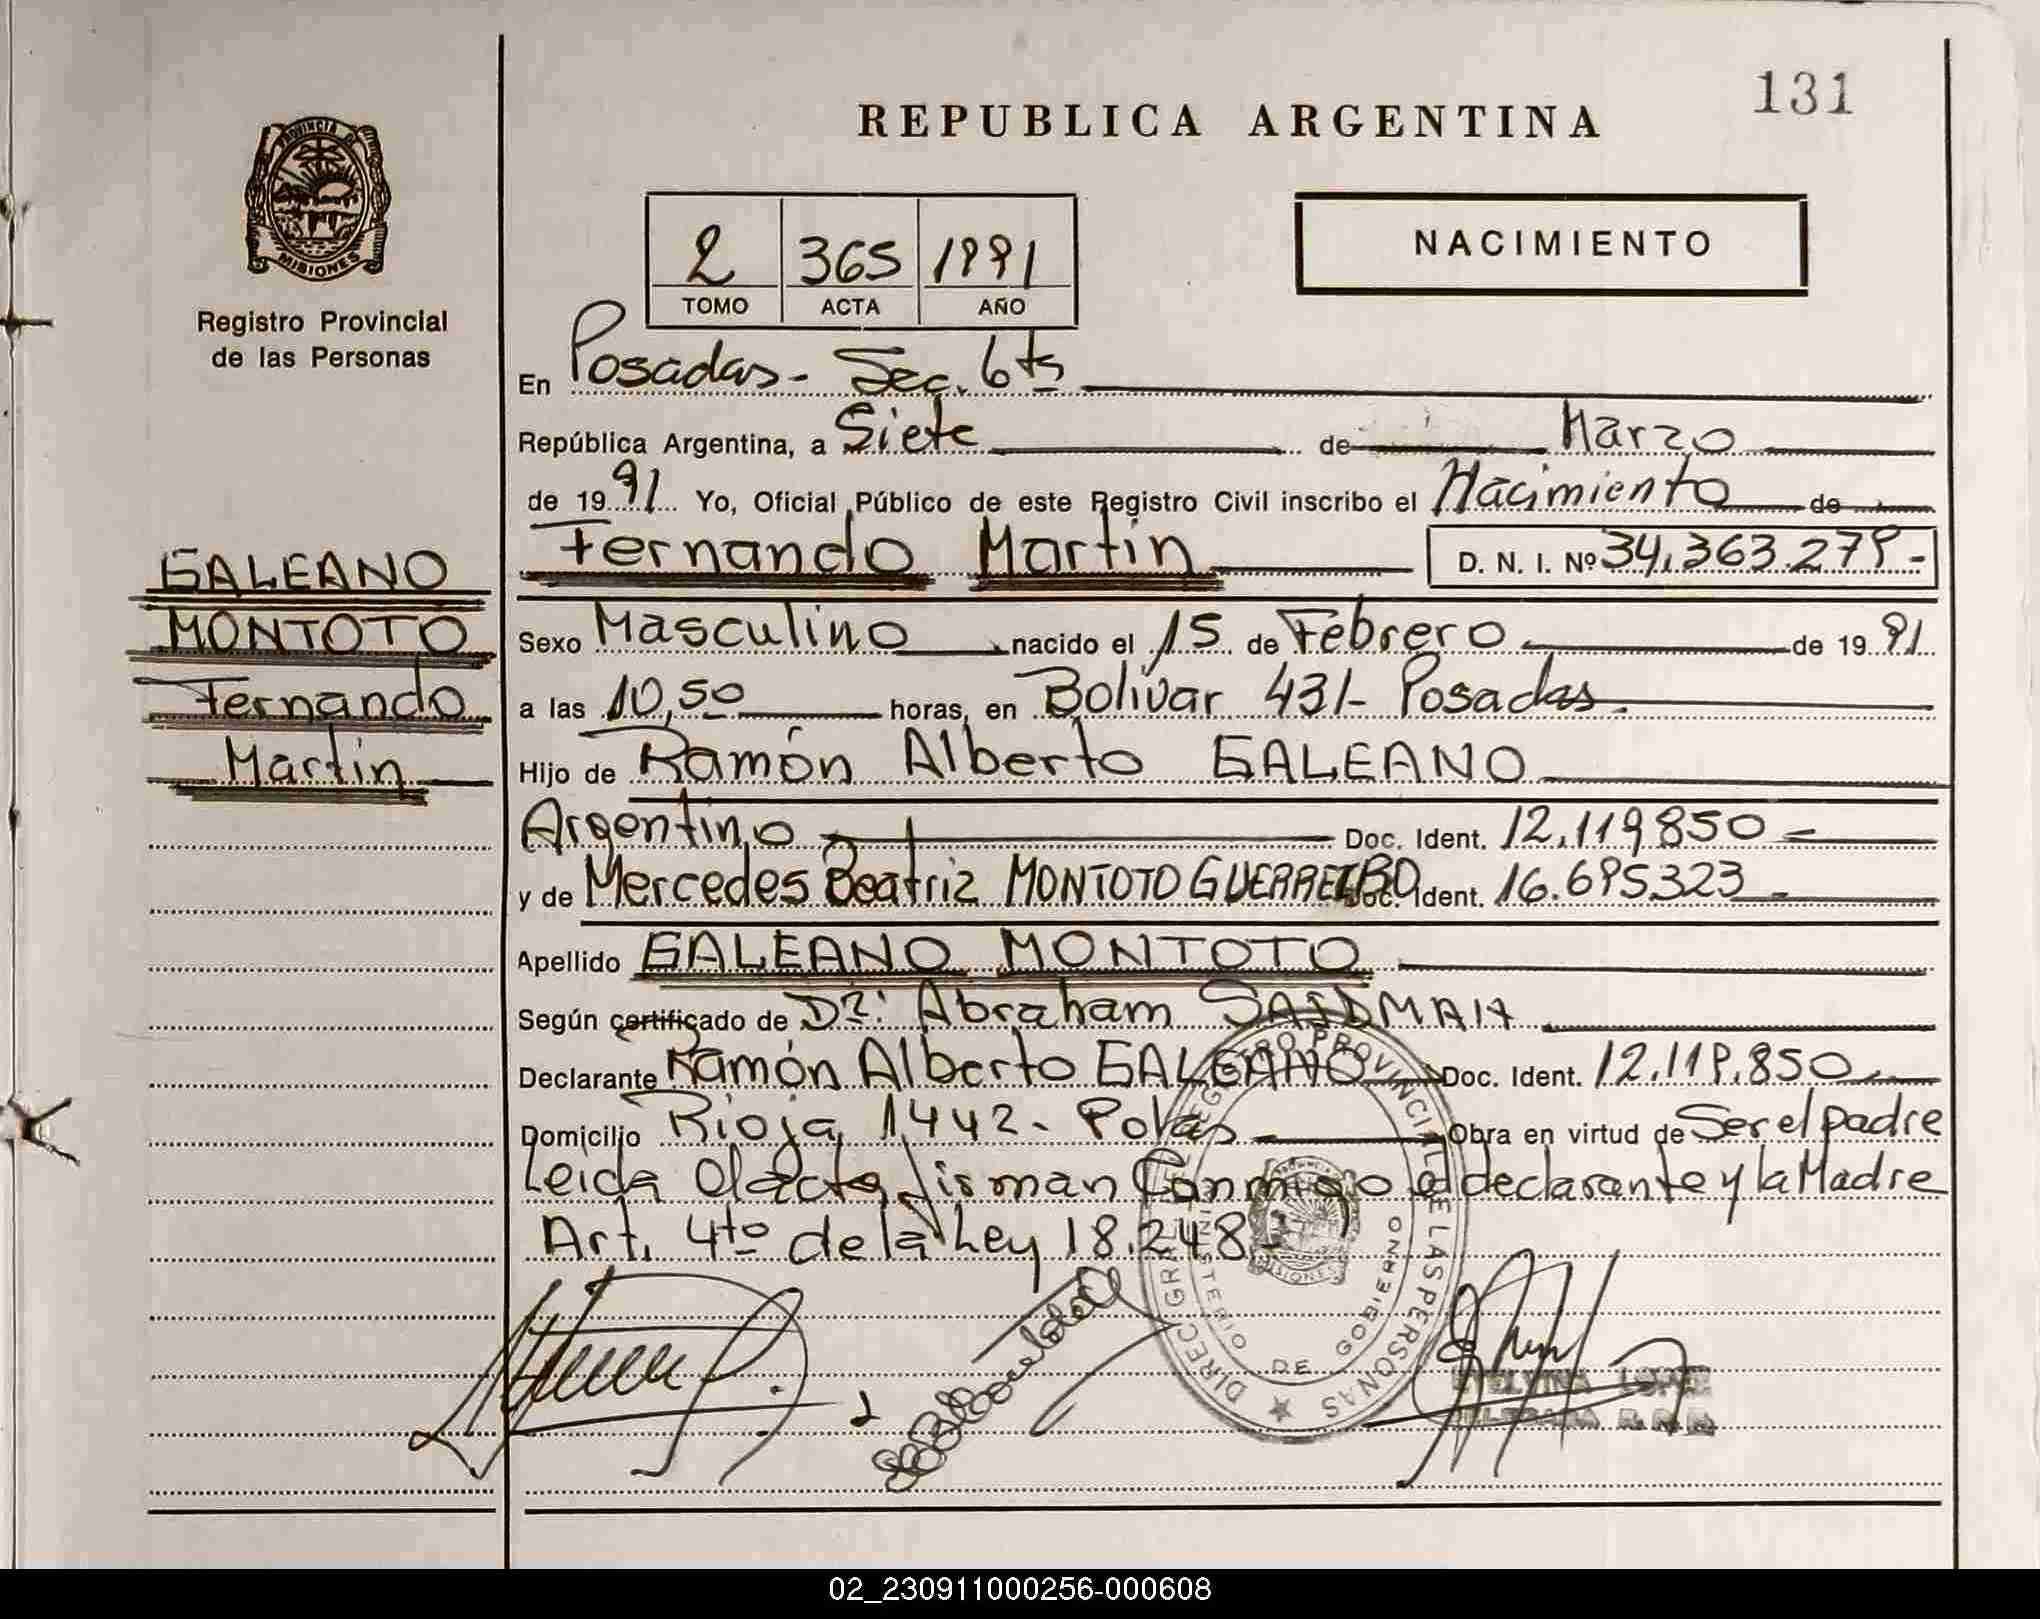 131
REPUBLICA ARGENTINA
PROVINCIA DE
MISIONES
Registro Provincial
de las Personas
2 365 1991
TOMO ACTA AÑO
NACIMIENTO
En Posadas- Sec. 6ta
República Argentina, a Siete de Marzo
de 1991 Yo, Oficial Público de este Registro Civil inscribo el Nacimiento de
Fernando Martin D. N. I. Nº 34.363.279-
GALEANO
MONTOTO
Fernando
Martin
Sexo Masculino nacido el 15 de Febrero de 1991
a las 10,50 horas, en Bolivar 431- Posadas.
Hijo de Ramón Alberto GALEANO
Argentino Doc. Ident. 12.119850-
y de Mercedes Beatriz MONTOTO GUERREIRO Doc. Ident. 16.695323-
Apellido GALEANO MONTOTO
Según certificado de Dr: Abraham SAIDMAN
Declarante Ramón Alberto GALEANO Doc. Ident. 12.119.850
Domicilio Rioja 1442- Pdas Obra en virtud de Ser el padre
Leida el acta, firman Conmigo el declarante y la Madre
Art. 4to de la Ley 18.248-
DIREC. GRAL. REGISTRO PROVINCIAL DE LAS PERSONAS
MINISTERIO DE GOBIERNO
MISIONES
LOPEZ
02_230911000256-000608